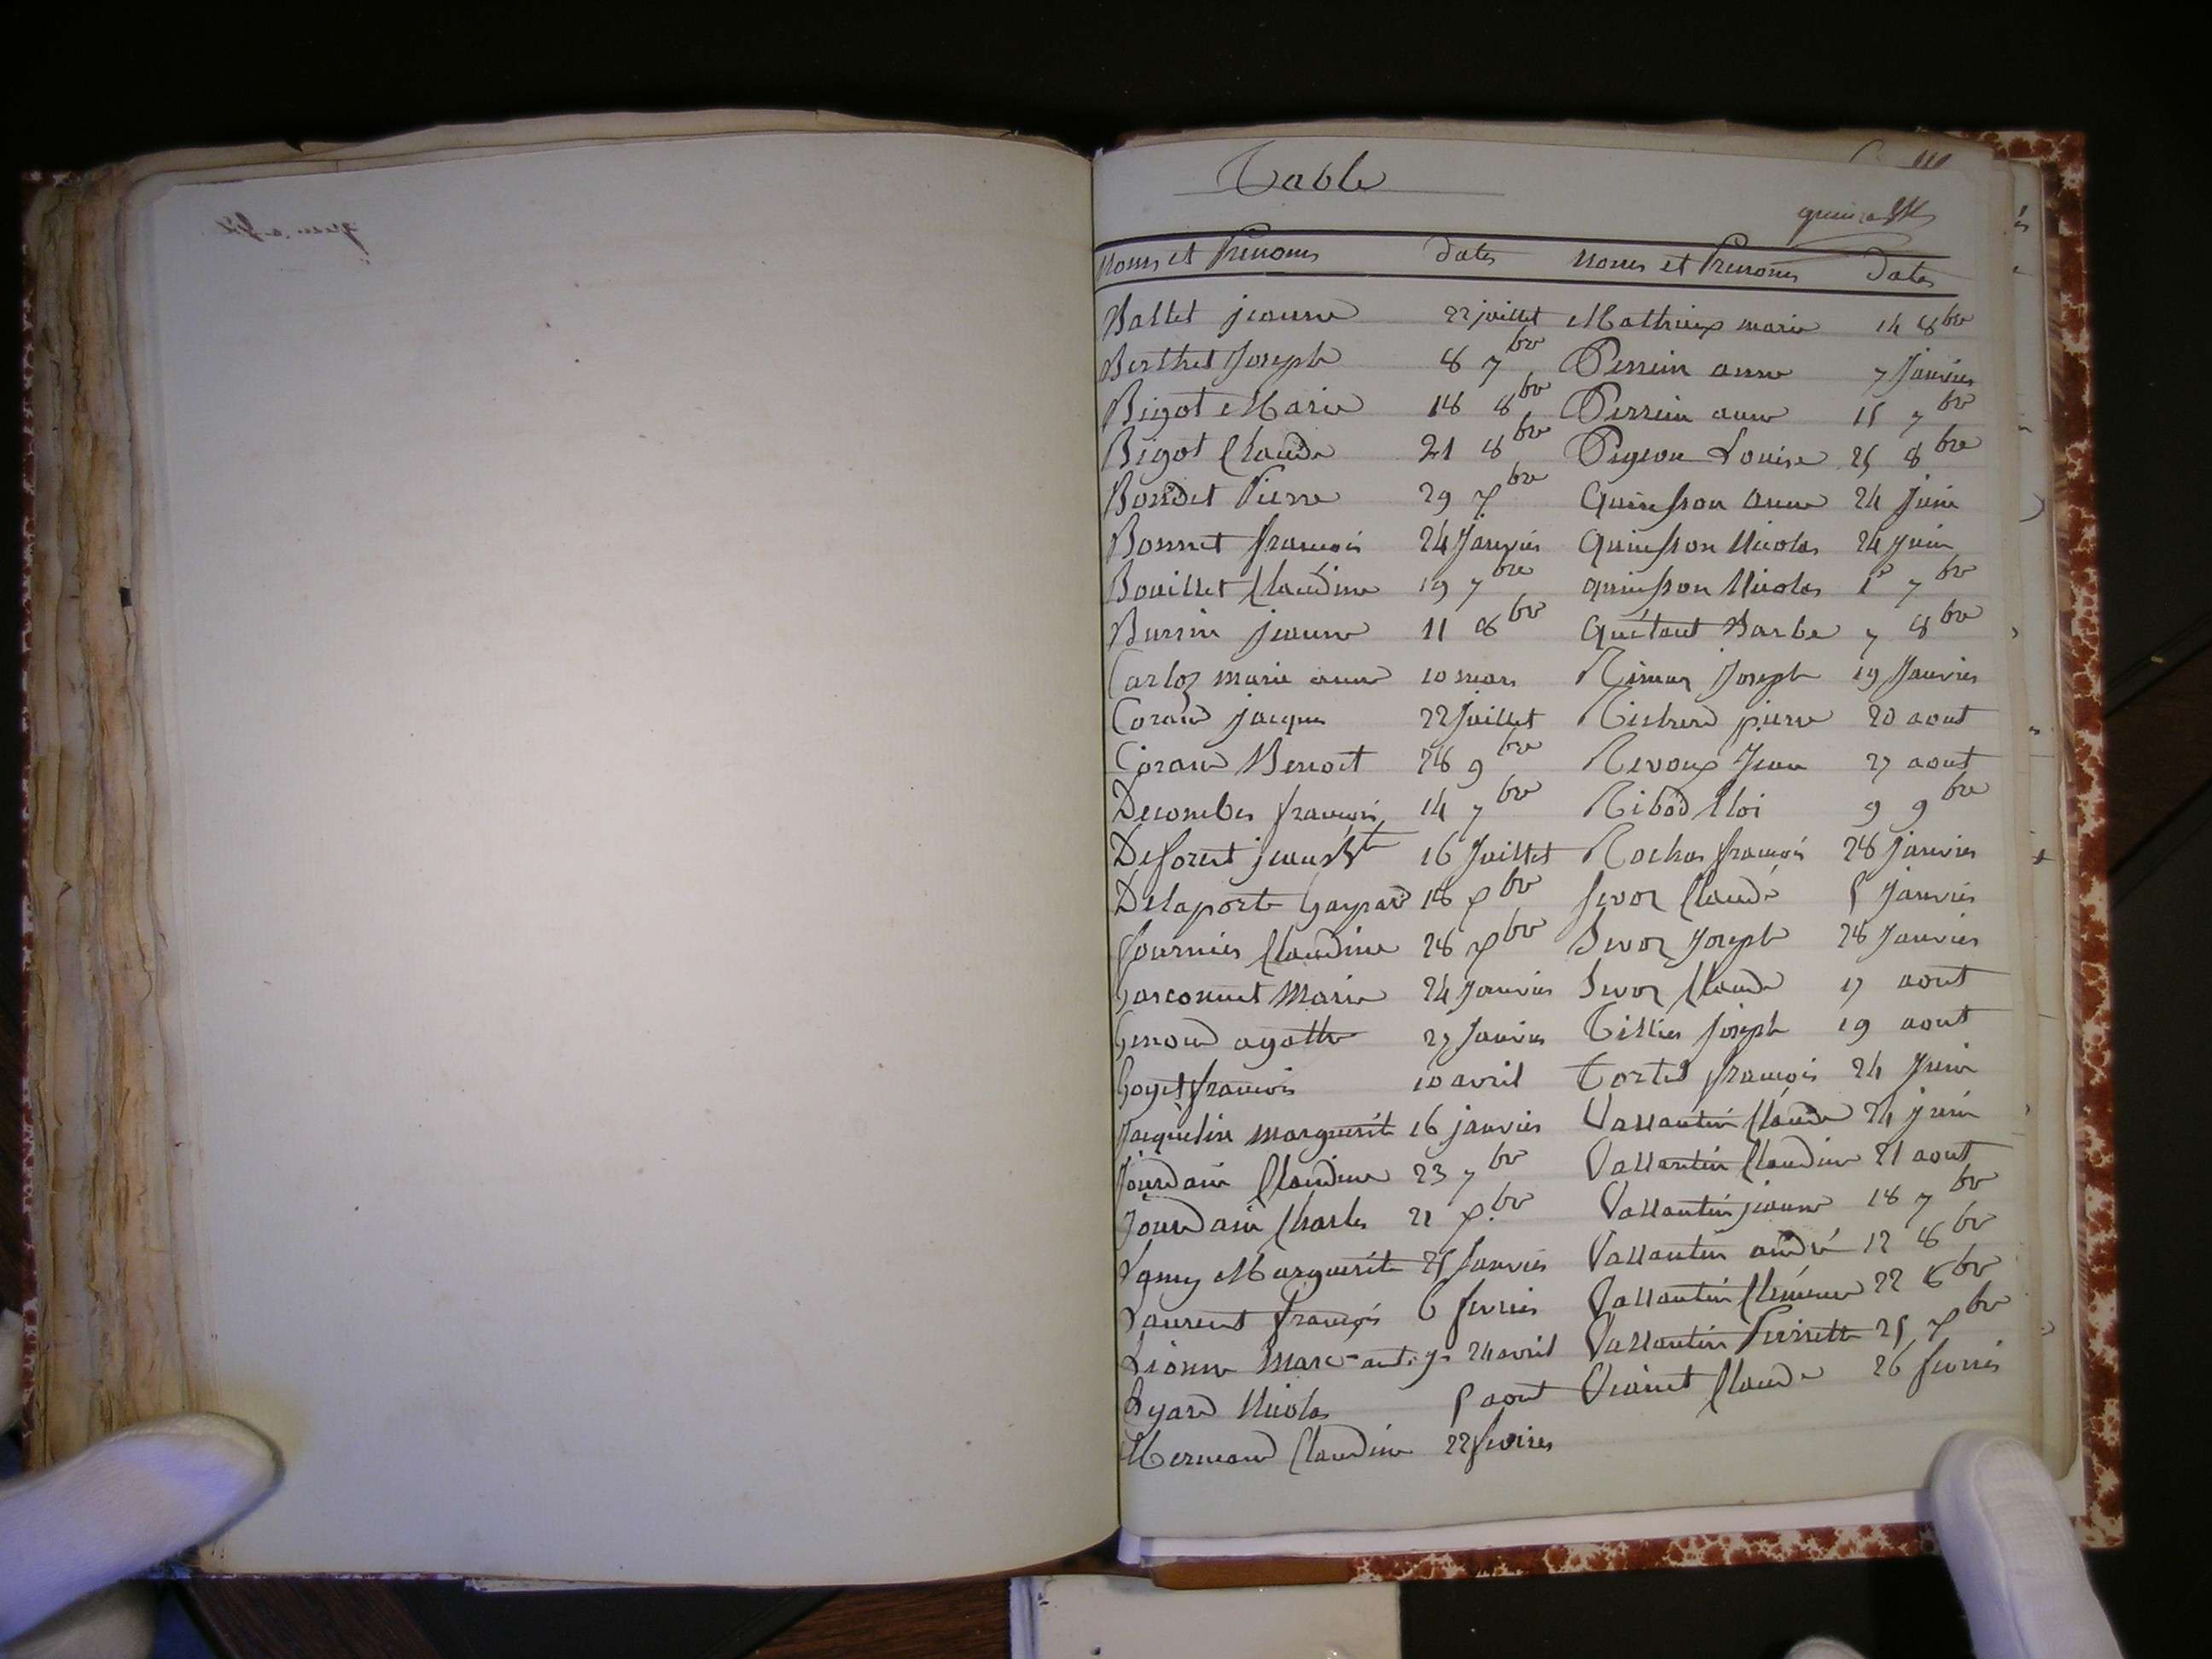 Table
Noms et Prenoms dates Noms et Prenoms dates
Ballet jeanne 22 juillet Mathieux marie 14 8bre
Berthet Joseph 8 7bre Perrein anne 7 Janvier
Bigot Marie 18 8bre Perrein anne 15 7bre
Bigot Claude 21 8bre Pigeon Louise 25 8bre
Bondet Pierre 29 xbre Quinsson anne 24 Juin
Bonnet francois 24 Janvier Quinsson Nicolas 24 juin
Bouillet Claudine 19 7bre quinsson Nicolas 1er 7bre
Burrin jeanne 11 8bre Quétant Barbe 7 8bre
Carloz marie anne 10 mars Joseph 19 Janvier
Corand jacques 22 Juillet pierre 20 aout
Corand Benoit 28 9bre Revoux Jean 27 aout
Decombes francois 14 7bre Ribod Eloi 9 9bre
Deforest jean Bte 16 Juillet Rochas francois 28 janvier
Delaporte Gaspard 18 xbre Sevoz Claude 5 Janvier
fournier Claudine 28 xbre Sevoz Joseph 28 Janvier
Garconnet Marie 24 Janvier Sevoz Claude 17 aout
Genoud agathe 27 Janvier Tillier Joseph 19 aout
Goyet francois 10 avril Tortel francois 24 Juin
Jacquelin marguerite 16 janvier Vallantin Claude 24 juin
Jourdain Claudine 23 7bre Vallantin Claudine 21 aout
Jourdain Charles 21 xbre Vallantin jeanne 18 7bre
Lamy Marguerite 25 Janvier Vallantin andré 12 8bre
Laurent francois 6 fevrier Vallantin 22 8bre
Lionne Marc 24 avril Vallantin Perrette 25 xbre
Lyard Nicolas 5 aout Vianet Claude 26 fevrier
Mermand Claudine 22 fevrier